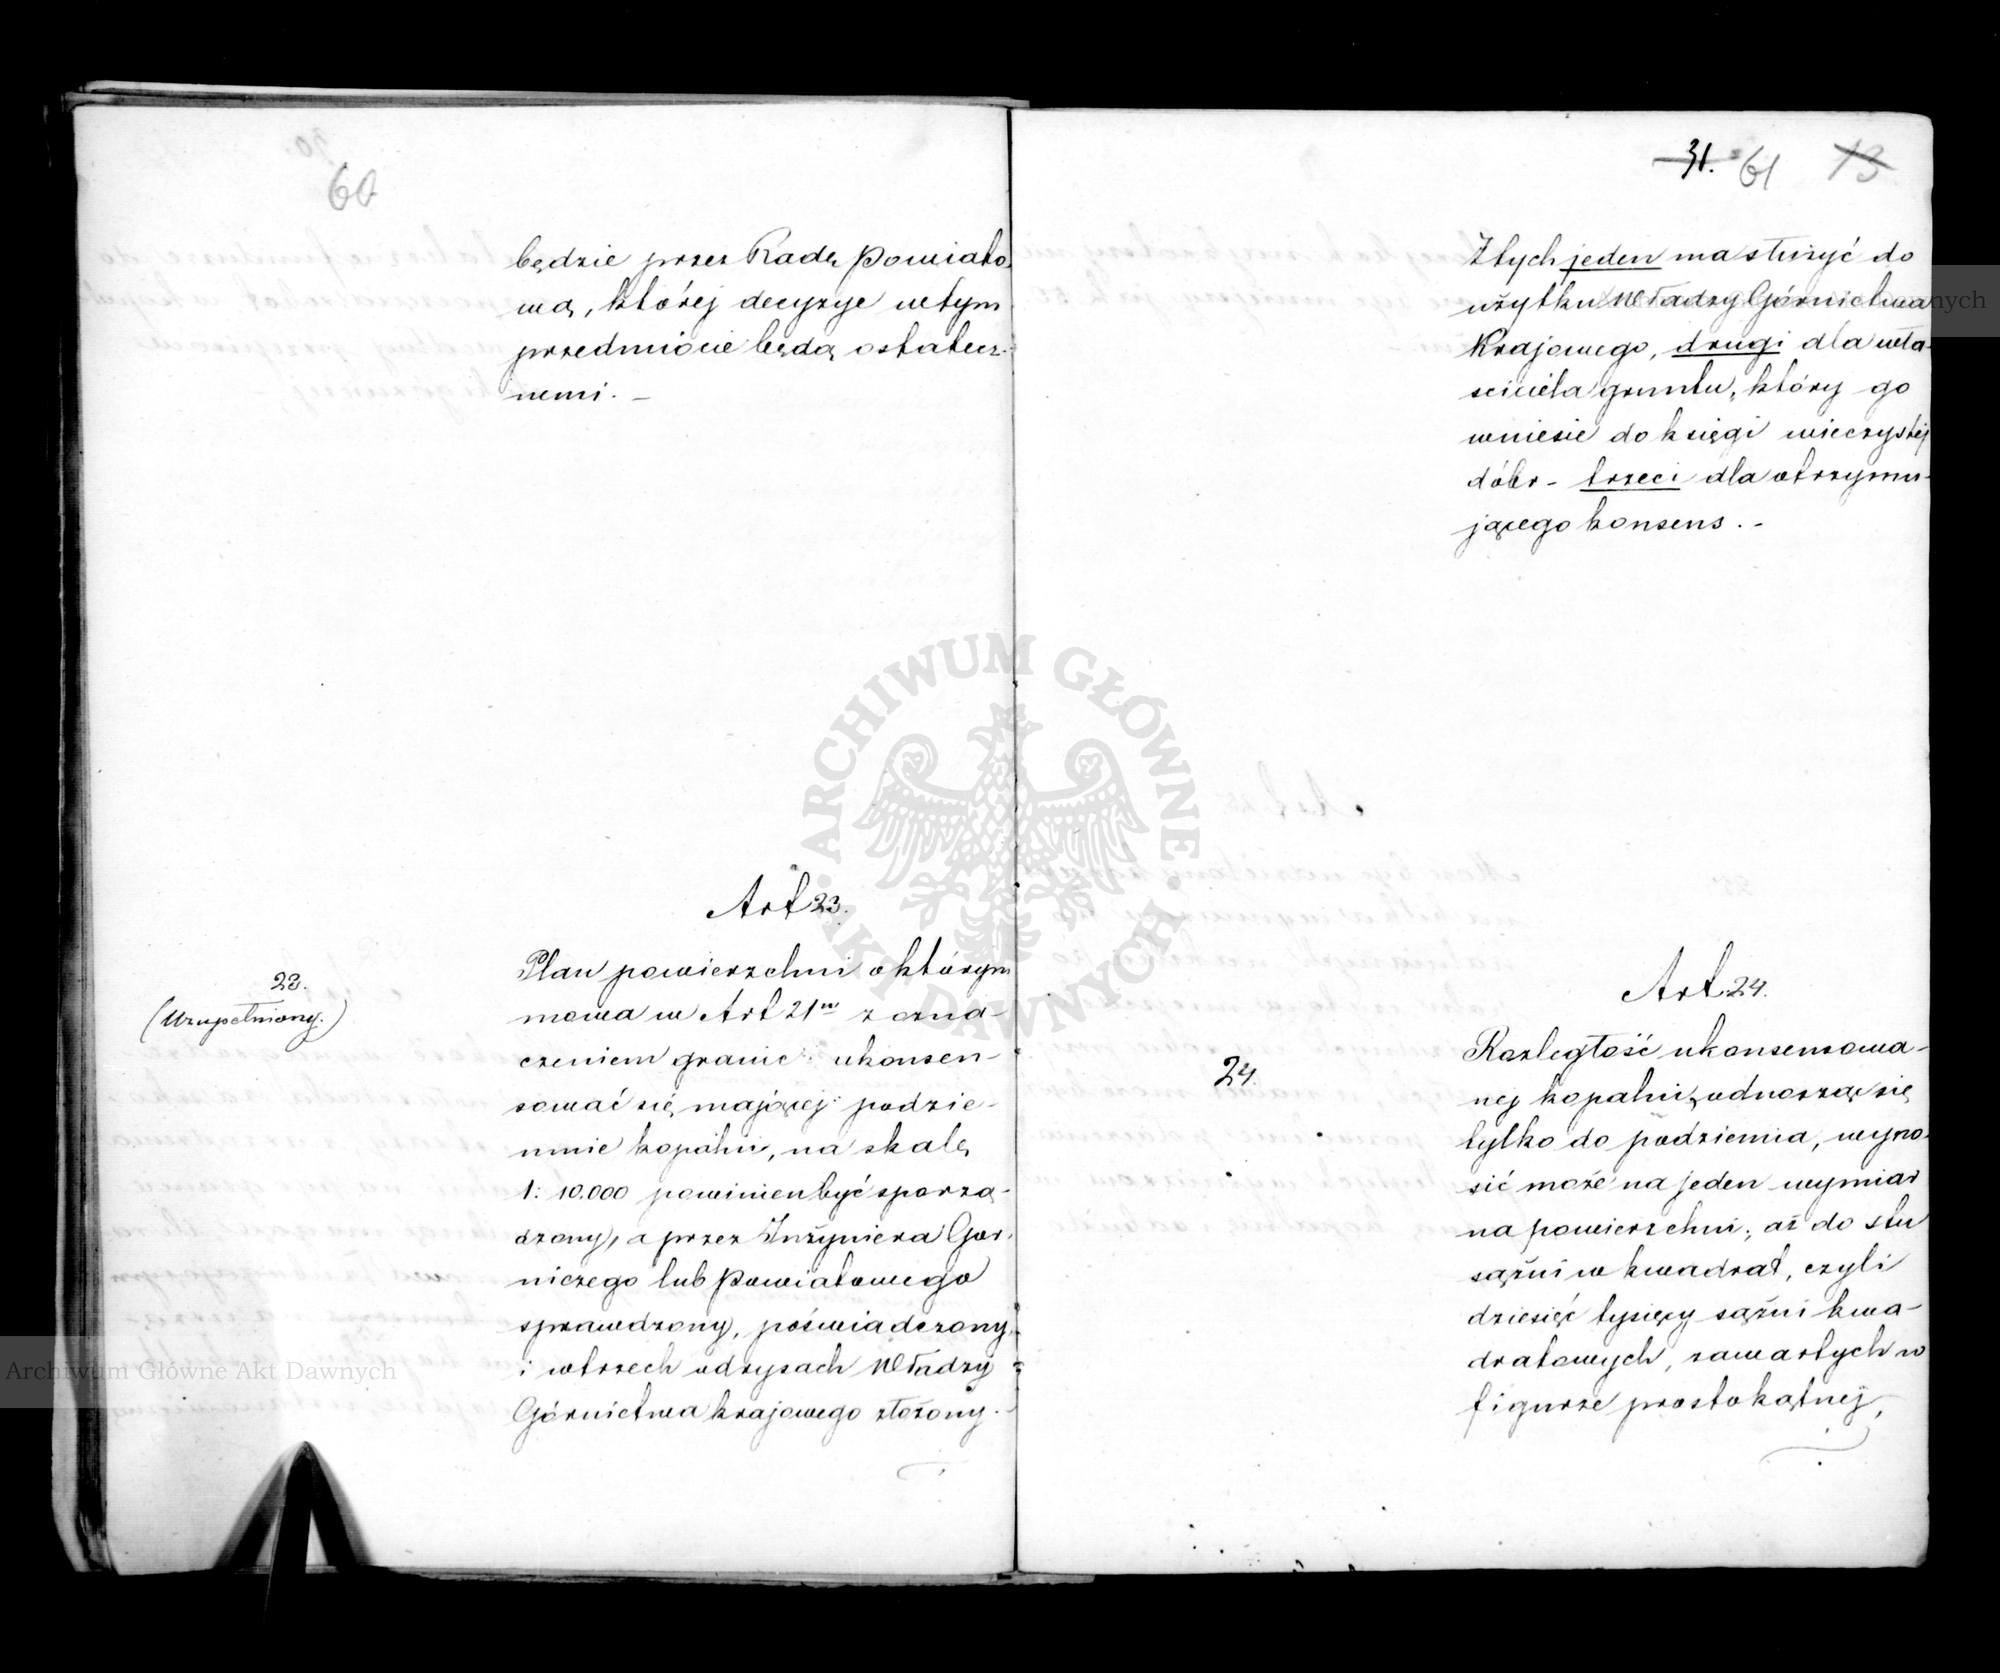 60
będzie przez Radę Powiato-
wą, której decyzye w tym
przedmiocie będą ostatecz-
nemi. –
Art 23.
23.
(Uzupełniony.)
Plan powierzchni o którym
mowa w Art 21m z ozna-
czeniem granic ukonsen-
sować się mającej podzie-
mnie kopalni, na skalę
1: 10.000 powinien być sporzą-
dzony, a przez Inżyniera Gór-
niczego lub Powiatowego
sprawdzony, poświadczony,
i w trzech odrysach Władzy
Górnictwa krajowego złożony. –
31. 61 13
Z tych jeden ma służyć do
użytku Władzy Górnictwa
Krajowego, drugi dla wła-
sciciela gruntu, który go
wniesie do księgi wieczystej
dóbr – trzeci dla otrzymu-
jącego konsens. –
Art. 24.
24.
Rozległość ukonsensowa-
nej kopalni, odnosząc się
tylko do podziemia, wyno-
sić może na jeden wymiar
na powierzchni, aż do stu
sążni w kwadrat, czyli
dziesięć tysięcy sążni kwa-
dratowych, zawartych w
figurze prostokątnej,
ARCHIWUM GŁÓWNE AKT DAWNYCH
Archiwum Główne Akt Dawnych